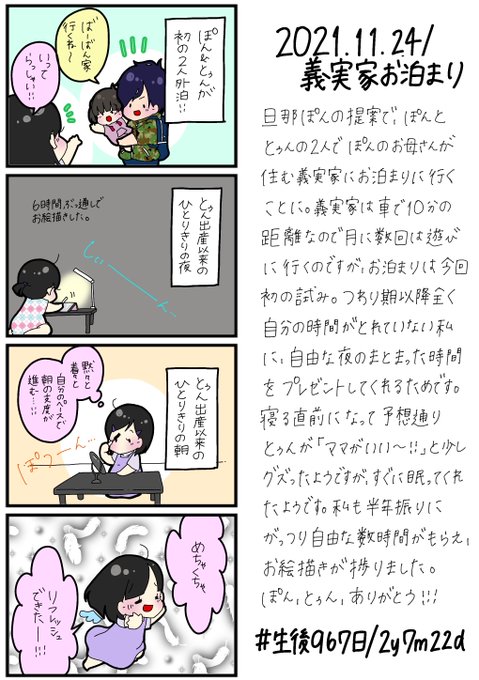 ぽん&とぅんが
初の2人外泊!!
ばーばん家
行くね〜
いって
らっしゃい!!
とぅん出産以来の
ひとりきりの夜
6時間ぶっ通しで
お絵描きした。
しぃーーーん
とぅん出産以来の
ひとりきりの朝
黙々と
着々と
自分のペースで
朝の支度が
進む…!!
ぽつーーん…
めちゃくちゃ
リフレッシュ
できたー!!!
2021.11.24/
義実家お泊まり
旦那ぽんの提案で、ぽんと
とぅんの2人でぽんのお母さんが
住む義実家にお泊まりに行く
ことに。義実家は車で10分の
距離なので月に数回は遊び
に行くのですが、お泊まりは今回
初の試み。つわり期以降全く
自分の時間がとれていない私
に、自由な夜のまとまった時間
をプレゼントしてくれるためです。
寝る直前になって予想通り
とぅんが「ママがいい〜!!」と少し
グズったようですが、すぐに眠ってくれ
たようです。私も半年振りに
がっつり自由な数時間がもらえ、
お絵描きが捗りました。
ぽん、とぅん、ありがとう!!!
#生後967日/2y7m22d